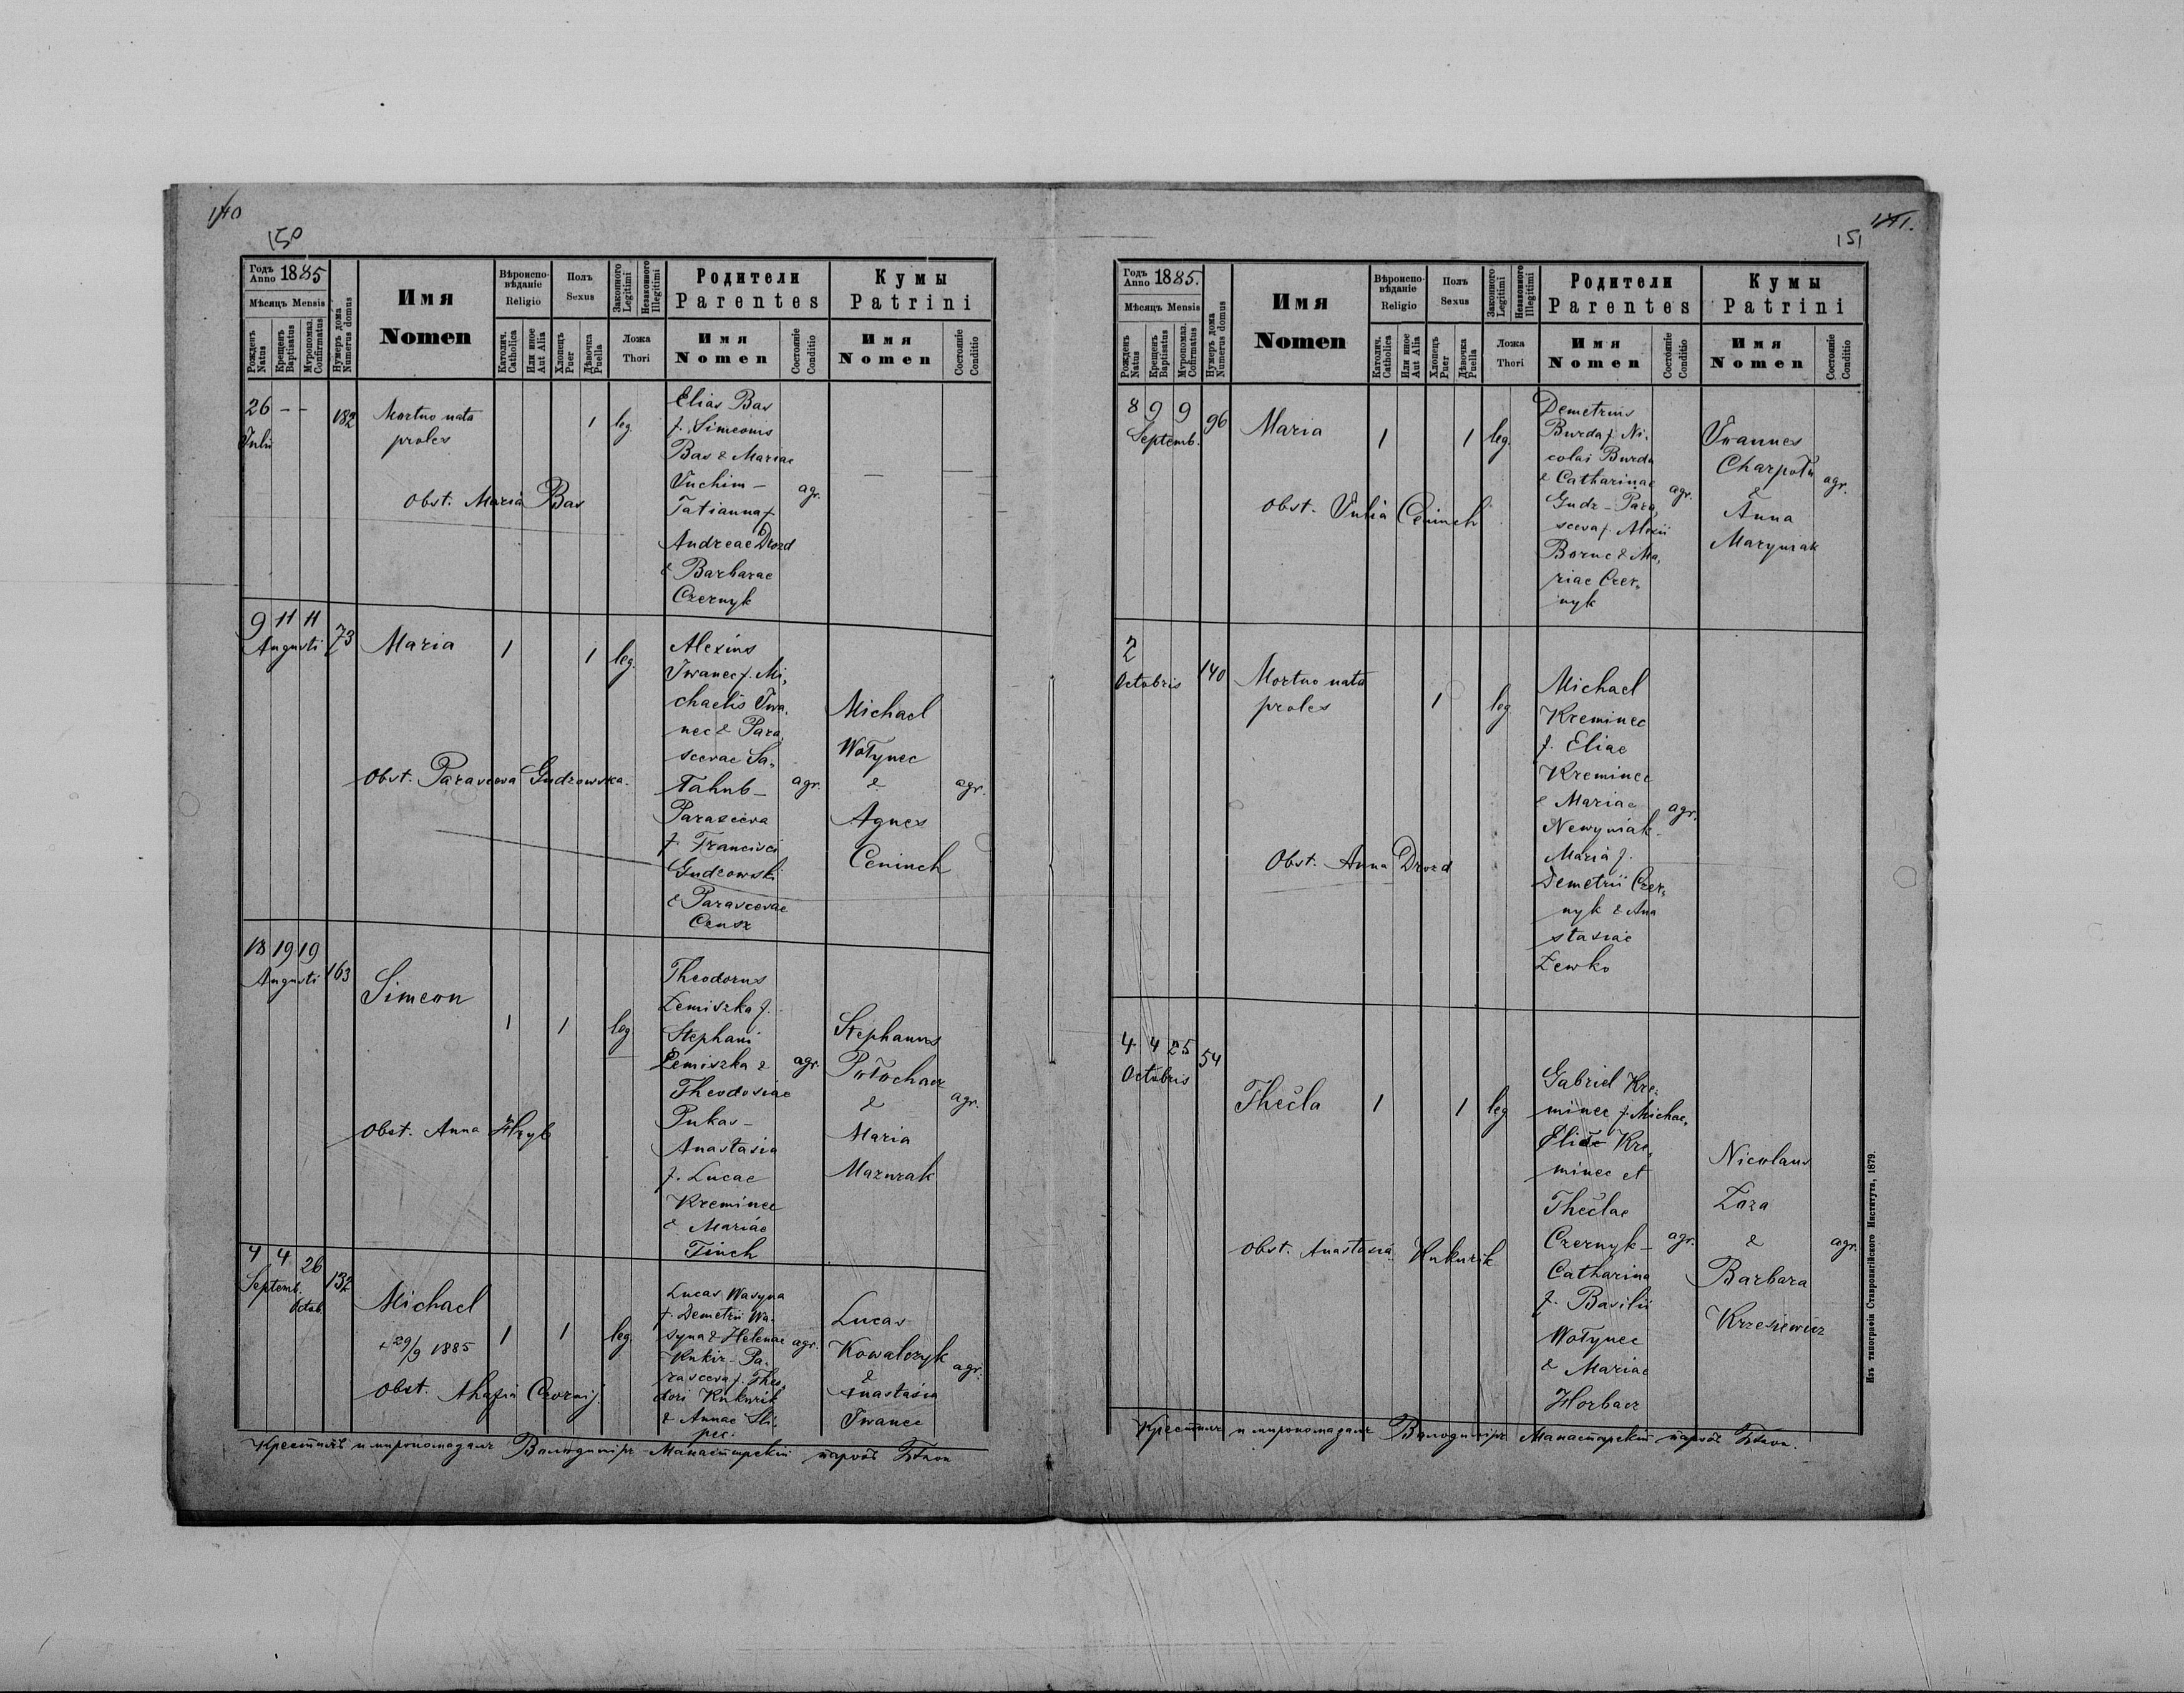 140
150
Годъ Anno 1885
Мѣсяцъ Mensis
Рожденъ Natus
Крещенъ Baptisatus
Мѵропомаз. Confirmatus
Нумеръ дома Numerus domus
Имя
Nomen
Вѣроиспо-
вѣданіе
Religio
Католич. Catholica
Или иное Aut Alia
Полъ
Sexus
Хлопецъ Puer
Дѣвочка Puella
Законного Legitimi
Незаконного Illegitimi
Ложа
Thori
Родители
Parentes
Имя
Nomen
Состояніе Conditio
Кумы
Patrini
Имя
Nomen
Состояніе Conditio
26 - -
Julii
182
Mortuo nata
proles
1
leg.
Obst. Maria Bas
Elias Bas
f. Simeonis
Bas & Mariae
Juchim –
Tatianna f.
Andreae Drozd
& Barbarae
Czernyk
agr.
—
—
9 11 11
Augusti
73
Maria
1
1
leg.
Obst. Parasceva Gudzowska.
Alexius
Iwanec f. Mi-
chaelis Iwa-
nec & Para-
scevae Sa-
łahub –
Parasceva
f. Francisci
Gudzowski
& Parascevae
agr.
Michael
Wołynec
&
Agnes
Ceninch
agr.
18 19 19
Augusti
163
Simeon
1
1
leg
Obst. Anna Hryb
Theodorus
Lemiszka f.
Stephani
Lemiszka &
Theodosiae
Pukas –
Anastasia
f. Lucae
Kreminec
& Mariae
agr.
Stephanus
Potochacz
&
Maria
Mazurak
agr.
4 4 26
Septemb.
Octob.
132
Michael
+ 29/9 1885
1
1
leg.
Obst. Ahafia Czornij.
Lucas Wasyna
f. Demetrii Wa-
syna & Helenae
Kukiz – Pa-
rasceva f. Theo-
dori Kukurik
& Annae Sli-
pec.
agr.
Lucas
Kowalczyk
&
Anastasia
Iwanec
agr.
Крестилъ и миропомазалъ Володимиръ Манастирскій парохъ
141.
151
Годъ Anno 1885.
Мѣсяцъ Mensis
Рожденъ Natus
Крещенъ Baptisatus
Мѵропомаз. Confirmatus
Нумеръ дома Numerus domus
Имя
Nomen
Вѣроиспо-
вѣданіе
Religio
Католич. Catholica
Или иное Aut Alia
Полъ
Sexus
Хлопецъ Puer
Дѣвочка Puella
Законного Legitimi
Незаконного Illegitimi
Ложа
Thori
Родители
Parentes
Имя
Nomen
Состояніе Conditio
Кумы
Patrini
Имя
Nomen
Состояніе Conditio
8 9 9
Septemb.
96
Maria
1
1
leg.
Obst. Julia Ceninch
Demetrius
Burda f. Ni-
colai Burda
& Catharinae
Gudz – Para-
sceva f. Alexii
Boruc & Ma-
riae Czer-
nyk
agr.
Joannes
&
Anna
Maryniak
agr.
2
Octobris
140
Mortuo nata
proles
1
leg
Obst. Anna Drozd
Michael
Kreminec
f. Eliae
Kreminec
& Mariae
Newyniak –
Maria f.
Demetrii Czer-
nyk & Ana
stasiae
Lewko
agr.
4 4 25
Octobris
54
Thecla
1
1
leg
Obst. Anastasia Kukurik
Gabriel Kre-
minec f. Michae-
Eliae Kre-
minec et
Theclae
Czernyk –
Catharina
f. Basilii
Wołynec
& Mariae
Horbacz
agr.
Nicolaus
Zoza
&
Barbara
Krzesiewicz
agr.
Крестилъ и миропомазалъ Володимиръ Манастирскій парохъ
Изъ типографіи Ставропигійского Института, 1879.